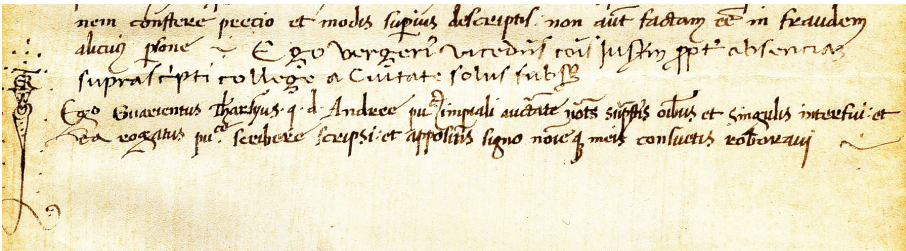 nem constere precio et modis supius descriptis. non aūt factam eē in fraudem
alicuius psone ~ Ego vergeri' vicedn's coīs Iustin ppt' absencia
suprascripti college a Ciuitate solus subs
Ego Guarientus Tharsyus. q. d. Andree pu.cus impiali auctate nots suptis oibus et singulis interfui. et
ea rogatus pu.ce scribere scripsi. et appositis signo noīeq meis consuetis roboraui